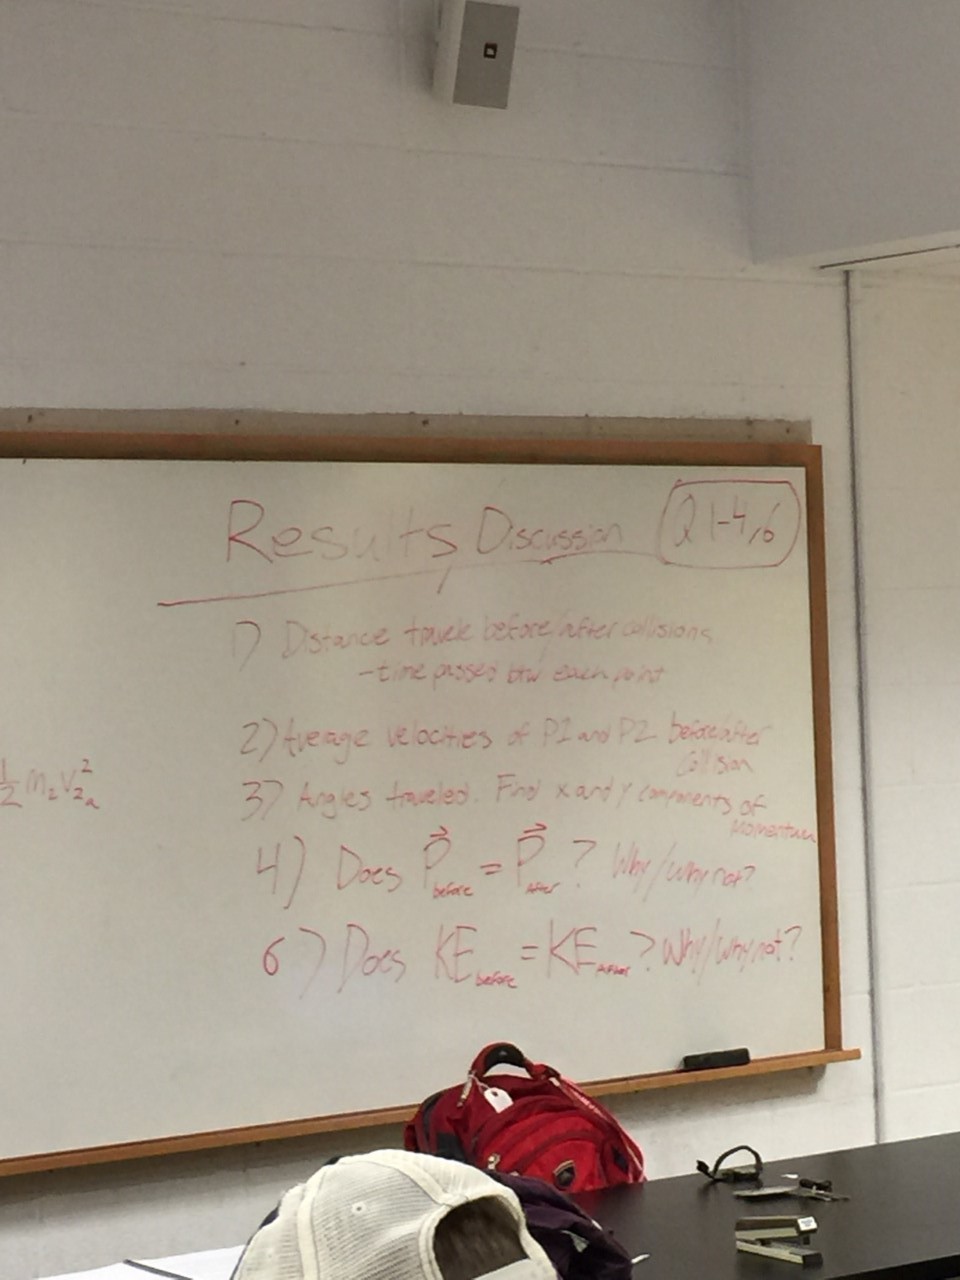 Results, Discussion Q 1-4,6
1) Distance travele before/after collisions
-time passed btw each point
2) Average velocities of P1 and P2 before/after
Collision
3) Angles traveled. Find x and y components of
Momentum
½ m₂ v₂ₐ²
4) Does P⃗before = P⃗After ? Why/why not?
6) Does KEbefore = KEAfter ? Why/why not?